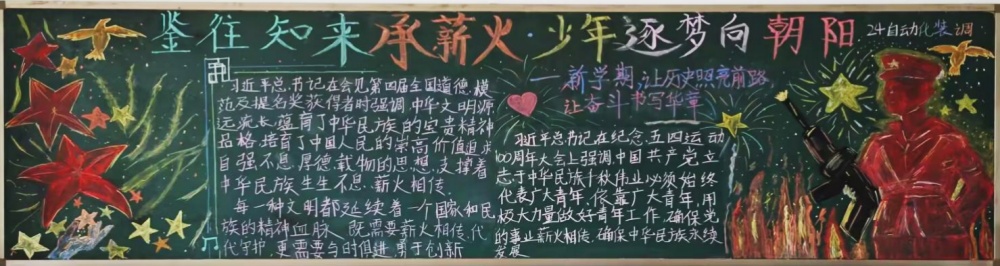 鉴往知来承薪火·少年逐梦向朝阳
24自动化装调
习近平总书记在会见第四届全国道德模
范及提名奖获得者时强调,中华文明源
远流长,蕴育了中华民族的宝贵精神
品格,培育了中国人民的崇高价值追求
自强不息,厚德载物的思想,支撑着
中华民族生生不息,薪火相传.
每一种文明都延续着一个国家和民
族的精神血脉,既需要薪火相传,代
代守护,更需要与时俱进,勇于创新
—新学期,让历史照亮前路
让奋斗书写华章
习近平总书记在纪念五四运动
100周年大会上强调中国共产党立
志于中华民族千秋伟业必须始终
代表广大青年,依靠广大青年,用
极大力量做好青年工作,确保党
的事业薪火相传,确保中华民族永续
发展